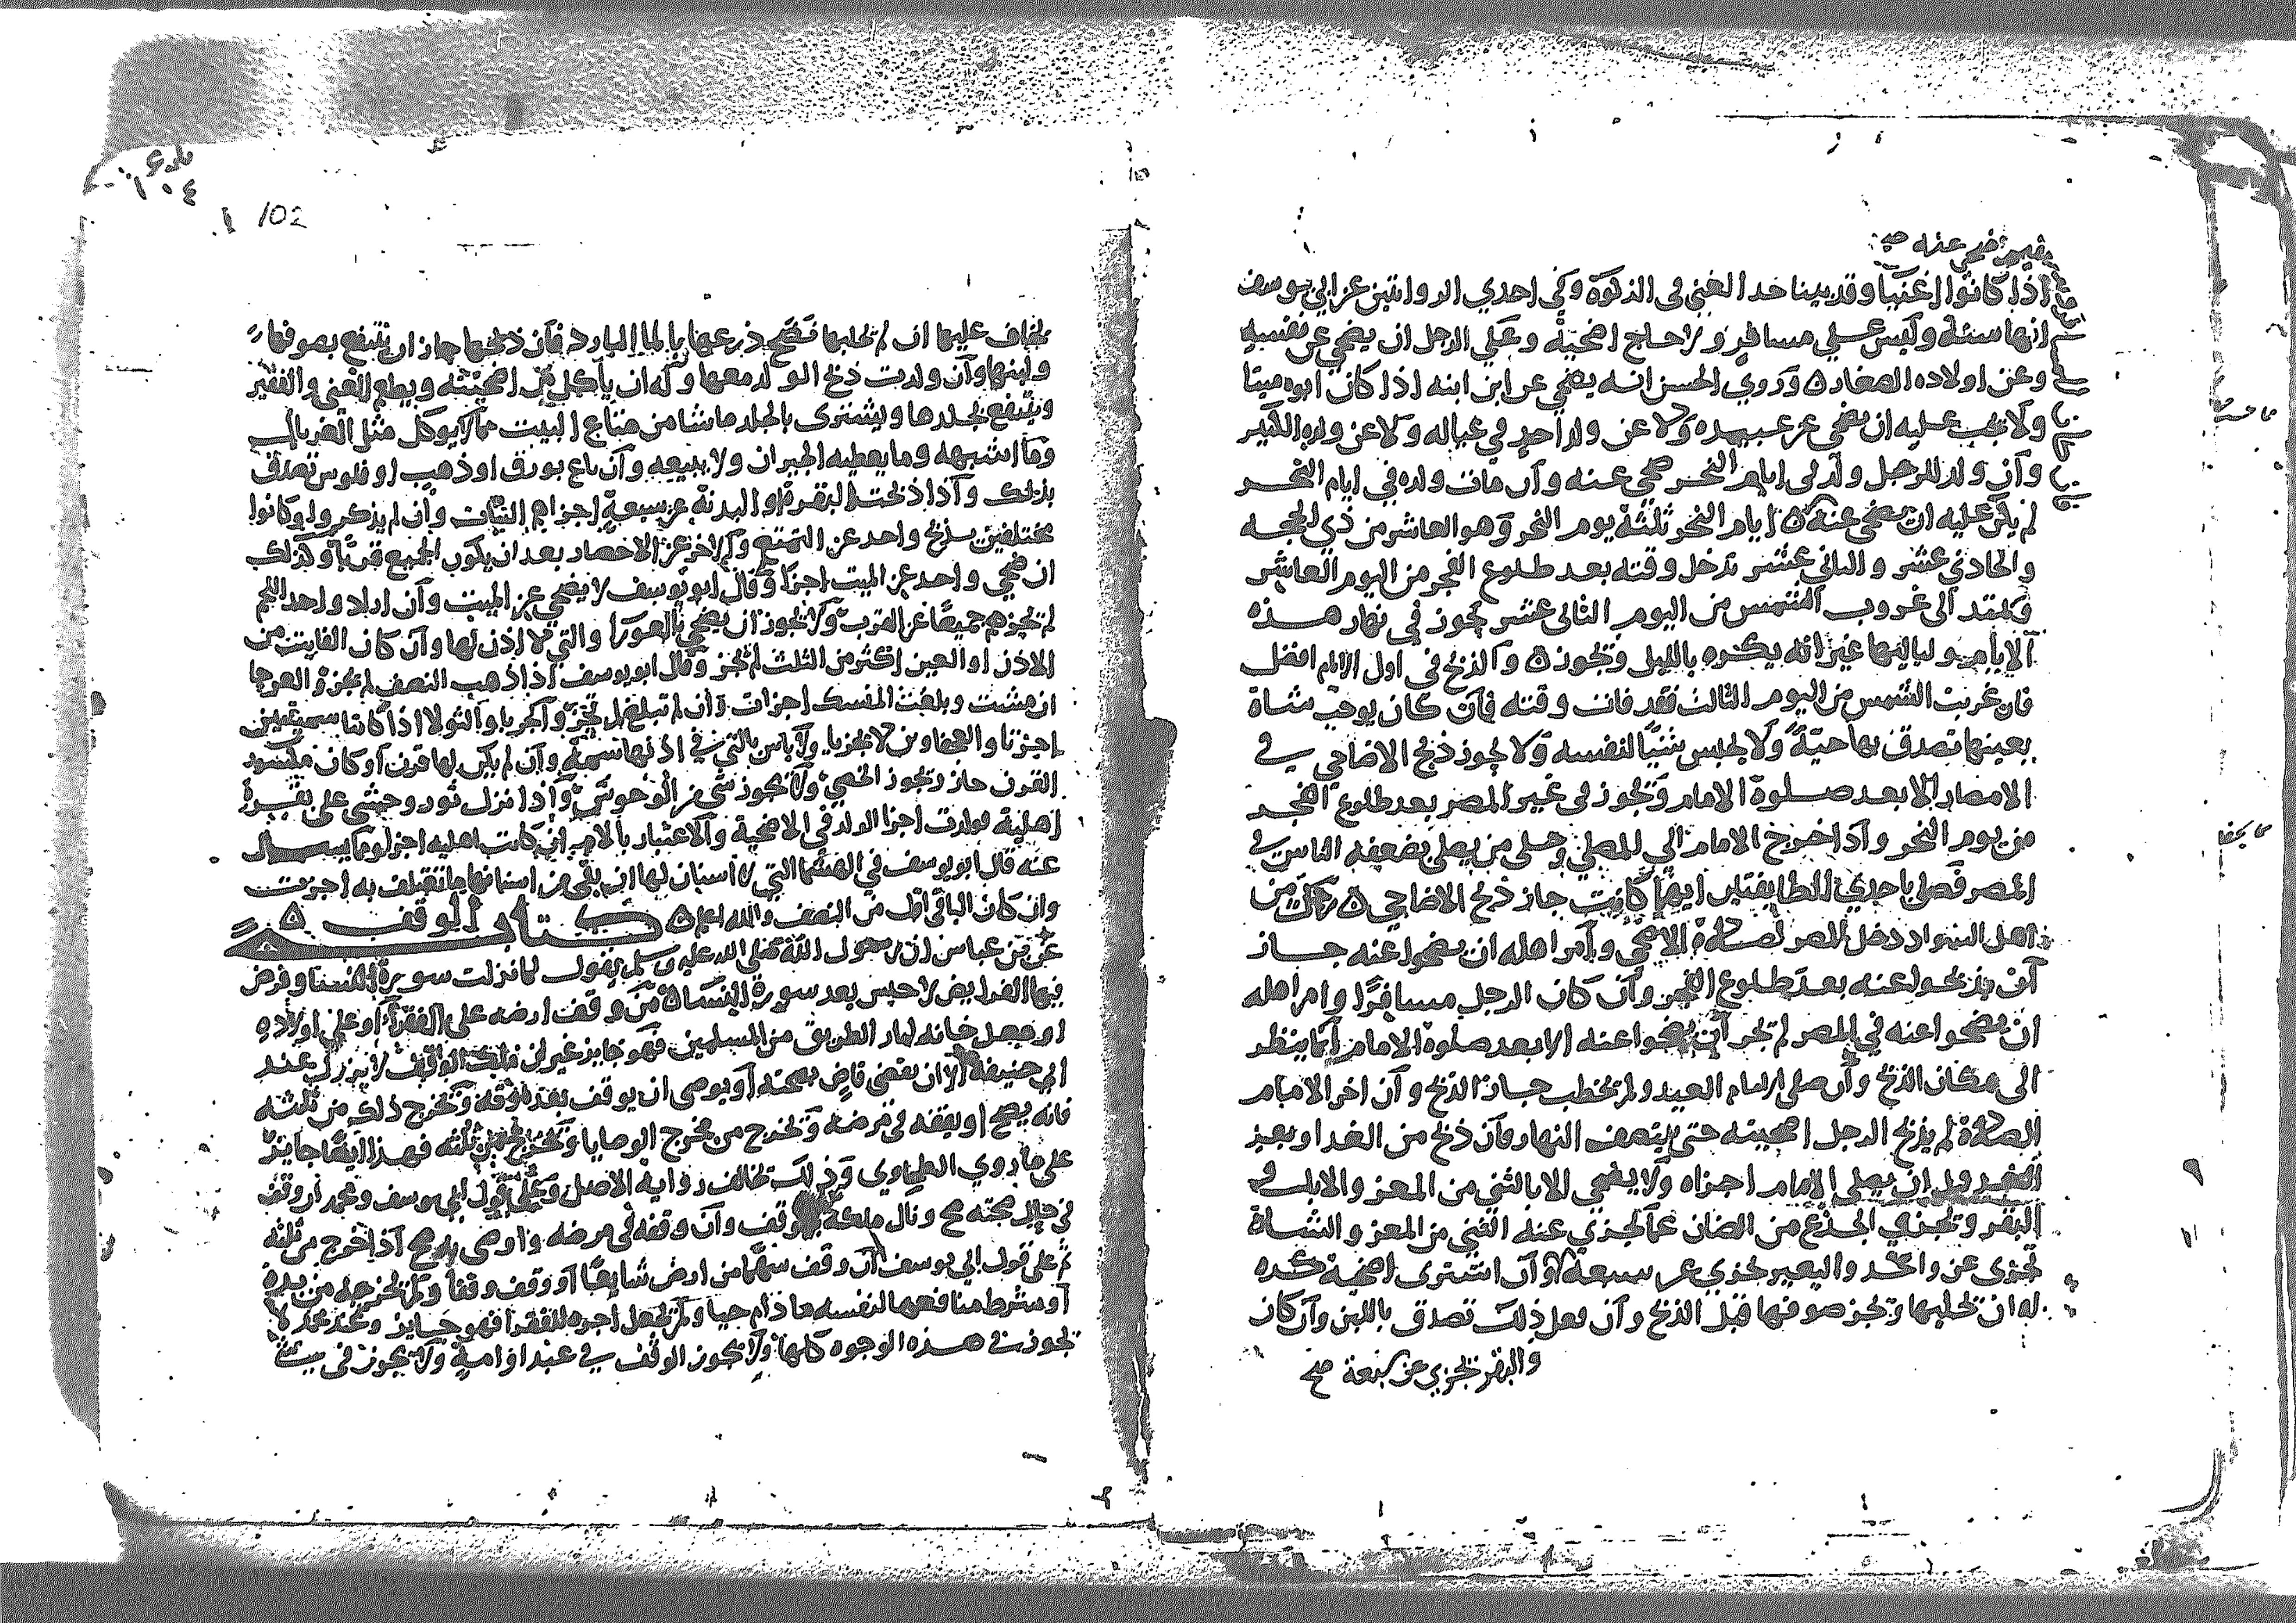 اذا كانوا اغنيا وقد بينا حد الغني في الزكوة وفي احدي الروايتين عن ابي يوسف
انها سنة وليس علي مسافر ولا حاج اضحية وعلي الرجل ان يضحي عن نفسه
وعن اولاده الصغار ٥ وروي الحسن انه يضحي عن ابن ابنه اذا كان ابوه ميتا
ولا يجب عليه ان يضحي عن عبيده ولا عن ولد احد في عياله ولا عن ولده الكبير
وان ولد للرجل ولد في ايام النحر ضحي عنه وان مات ولده في ايام النحر
لم يكن عليه ان يضحي عنه ٥ ايام النحر ثلثة يوم النحر وهو العاشر من ذي الحجه
والحادي عشر والثاني عشر تدخل وقته بعد طلوع الفجر من اليوم العاشر
ويمتد الي غروب الشمس من اليوم الثاني عشر يجوز في نهار هذه
الايام ولياليها غير انه يكره بالليل ويجوز ٥ والذبح في اول الايام افضل
فان غربت الشمس من اليوم الثالث فقد فات وقته فان كان يوجب شاة
بعينها تصدق بها حية ولا يحبس شيئا لنفسه ولا يجوز ذبح الاضاحي في
الامصار الا بعد صلوة الامام ويجوز في غير المصر بعد طلوع الفجر
من يوم النحر واذا خرج الامام الي المصلي وخلي من يصلي بضعفه الناس في
المصر فصلي باحدي الطايفتين ايهما كانت جاز ذبح الاضاحي ٥ من
اهل السواد دخل المصر لصلاة الاضحي وامر اهله ان يضحوا عنه جاز
ان يذبحوا عنه بعد طلوع الفجر وان كان الرجل مسافرا وامر اهله
ان يضحوا عنه في المصر لم تجز ان يضحوا عنه الا بعد صلوة الامام انما ينظر
الي مكان الذبح وان صلي الامام العيد ولم يخطب جاز الذبح وان اخر الامام
الصلاة لم يذبح الرجل اضحيته حتي ينتصف النهار فان ذبح من الغد او بعد
الغد قبل ان يصلي الامام اجزاه ولا يضحي الا بالثني من المعز والابل و
البقر ويجزي الجذع من الضان عما يجزي عنه الثني من المعز والشاة
تجزي عن واحد والبعير يجزي عن سبعة وان اشتري اضحية كره
له ان يحلبها ويجز صوفها قبل الذبح وان فعل ذلك تصدق باللبن وان كان
والبقر تجزي عن سبعة صح
102
يخاف عليها ان لم يحلبها نضح ضرعها بالما البارد فان ذبحها جاز ان ينتفع بصوفها
ولبنها وان ولدت ذبح الولد معها وله ان ياكل من اضحيته ويطعم الغني والفقير
وينتفع بجلدها ويشتري بالجلد ما شا من متاع البيت مما لا يوكل مثل الغربال
وما اشبهه وما يعطيه الجيران ولا يبيعه وان باع بورق او ذهب او فلوس تصدق
بذلك واذا ذبحت البقرة او البدنة عن سبعة اجزاهم النيات وان لم يذكروا وكانوا
مختلفين يذبح واحد عن التمتع والاخر عن الاحصار بعد ان يكون الجميع قربا وكذلك
ان ضحي واحد عن الميت اجزا وقال ابو يوسف لا يضحي عن الميت وان اراد واحد اللحم
لم تجزهم جميعا عن القرب ولا يجوز ان يضحي بالعورا والتي لا اذن لها وان كان الفايت من
الاذن او العين اكثر من الثلث لم تجز وقال ابو يوسف اذا ذهب النصف لم تجز والعرجا
ان مشت وبلغت المنسك اجزات وان لم تبلغ لم تجز والجربا والثولا اذا كانتا سمينتين
اجزتا والعجفاوين لا تجزيا ولا باس بالتي في اذنها سمة وان لم يكن لها قرن او كان مكسور
القرن جاز ويجوز الخصي ولا يجوز شي من الوحوش واذا نزل ثور وحشي علي بقرة
اهلية فولدت اجزا الولد في الاضحية والاعتبار بالام ان كانت اهليه اجزا وما يسال
عنه قال ابو يوسف في الهتما التي لا اسنان لها ان بقي من اسنانها ما تعتلف به اجزت
وان كان الباقي اقل من النصف والله اعلم ٥ كتاب الوقف ٥
عن بن عباس ان رسول الله صلي الله عليه وسلم يقول لما نزلت سورة النسا وفرض
فيها الفرايض لا حبس بعد سورة النسا ٥ من وقف ارضه علي الفقرا او علي اولاده
او جعل خانه لمار الطريق من المسلمين فهو جايز غير ان ملك الواقف لا يزول عند
ابي حنيفة الا ان يقضي قاض بصحته او يوصي ان يوقف بعد موته ويخرج ذلك من ثلثه
فانه يصح او يقفه في مرضه ويخرج من مخرج الوصايا ويخرج من ثلثه فهذا ايضا جايز
علي ما روي الطحاوي وذلك تخالف رواية الاصل وعلي قول ابي يوسف ومحمد ان وقف
في حال صحته صح وزال ملكه وقف وان وقفه في مرضه واوصي به صح اذا خرج من ثلثه
ثم علي قول ابي يوسف ان وقف سهما من ارض شايعا او وقف وقفا ولم يخرجه من يده
او شرط منافعها لنفسه ما دام حيا ولم يجعل اجره للفقرا فهو جايز وعند محمد لا
تجوز في هذه الوجوه كلها ولا يجوز الوقف في عبد او امة ولا يجوز في شي